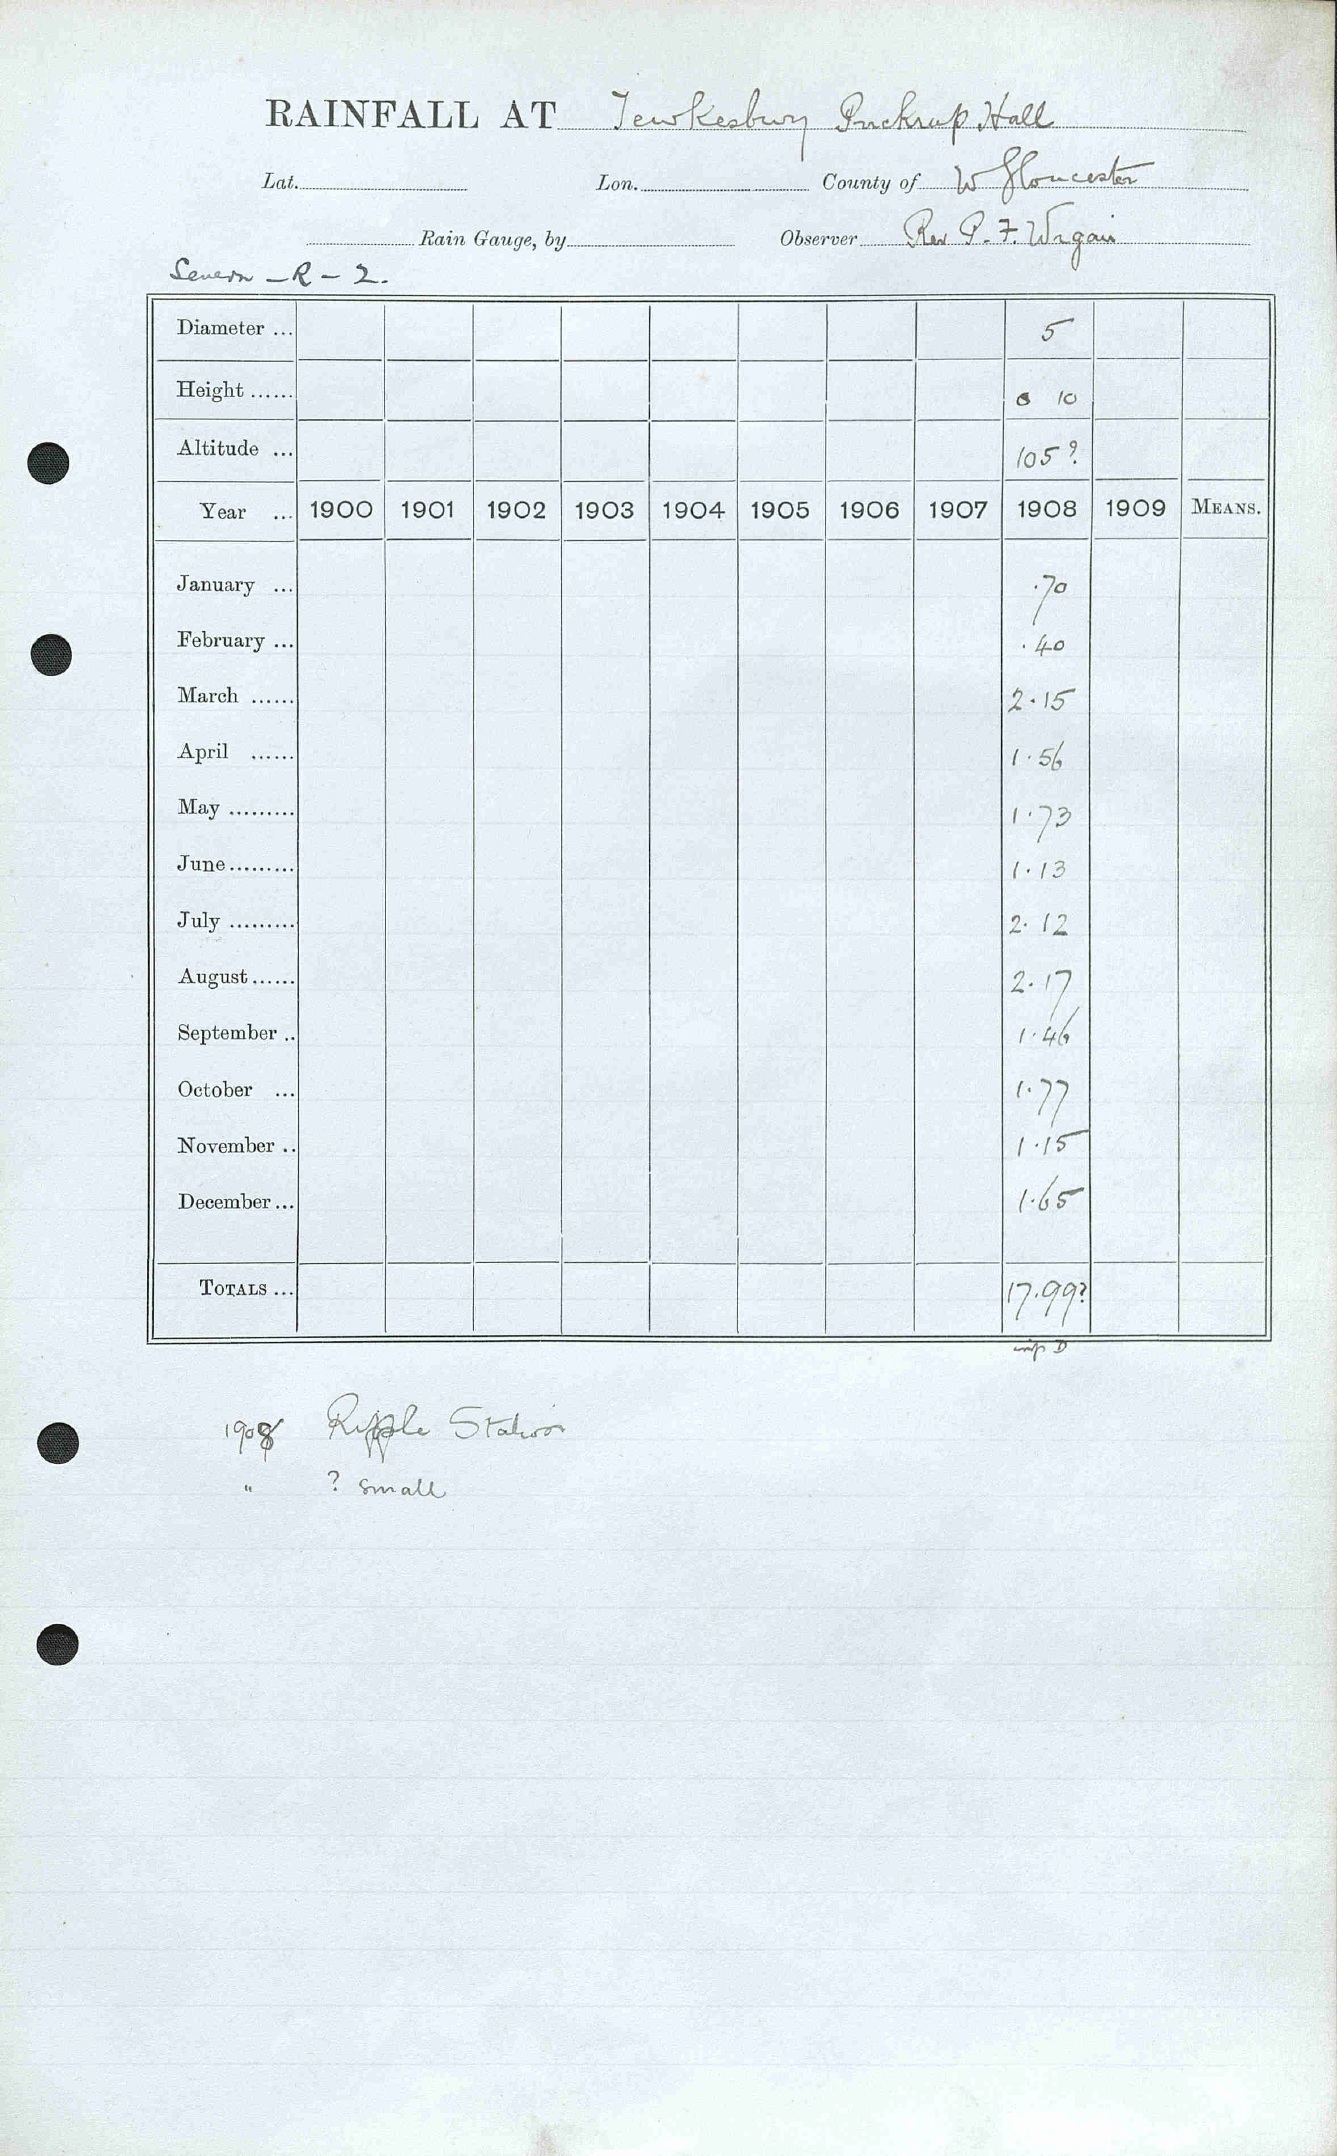 RAINFALL AT Tewkesbury Puckrup Hall
Lat. Lon. County of W Gloucester
Rain Gauge, by Observer Rev P. F. Wigan
Severn - R - 2.
Diameter ... 5
Height ...... 0 10
Altitude ... 105?
Year ... 1900 1901 1902 1903 1904 1905 1906 1907 1908 1909 MEANS.
January ... .70
February ... .40
March ...... 2.15
April ...... 1.56
May ......... 1.73
June ......... 1.13
July ......... 2.12
August ...... 2.17
September .. 1.46
October ... 1.77
November .. 1.15
December ... 1.65
TOTALS ... 17.99?
1908 Ripple Station
" ? small